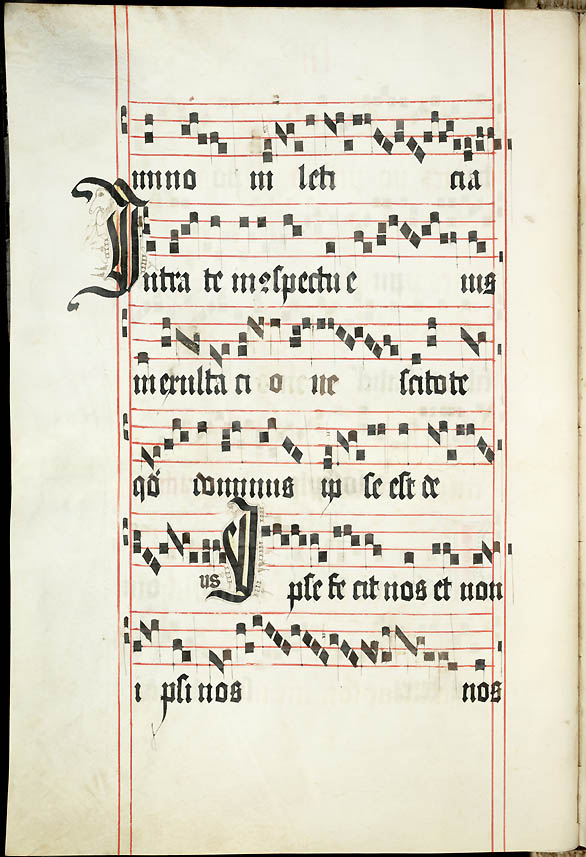 mino in leti cia
Intra te in cõspectu e ius
in exulta ci o ne scitote
qđ dominus ip se est de
us Ipse fe cit nos et non
i psi nos nos